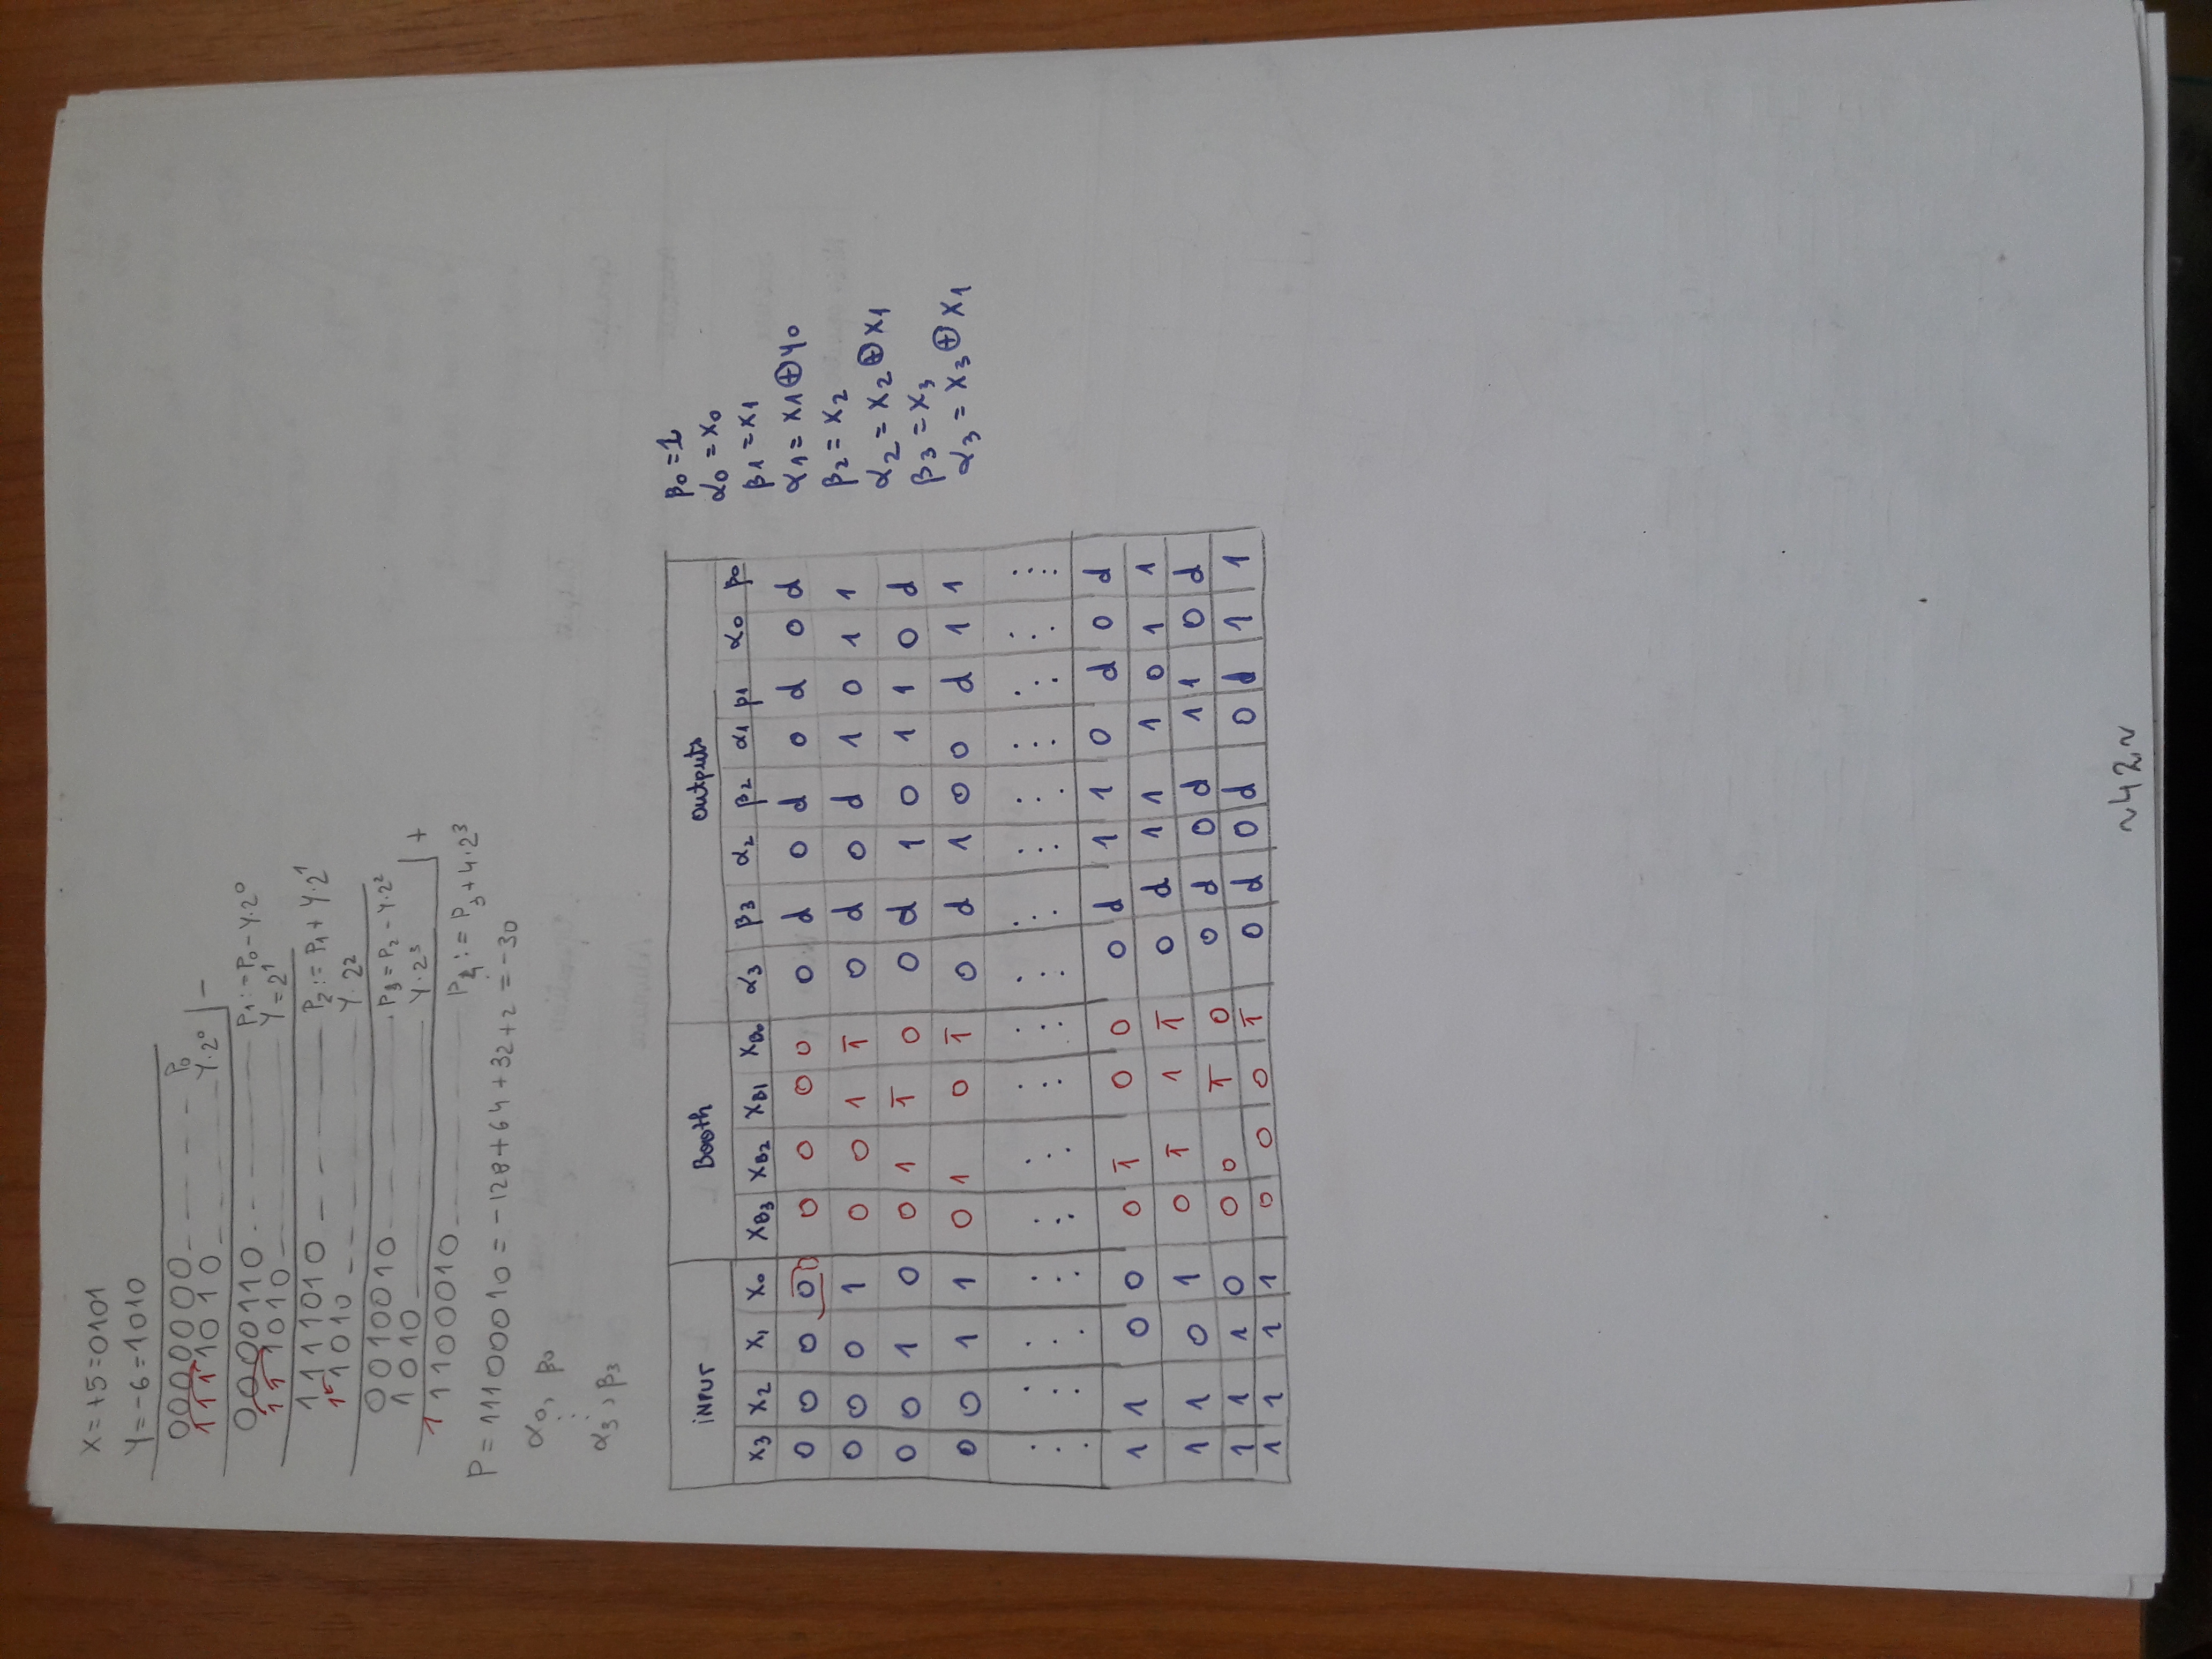 X=+5=0101
Y=-6=1010
0000000 P₀
1111010 Y·2⁰ -
0000110 P₁:=P₀-Y·2⁰
111010 Y=2¹
1111010 P₂:=P₁+Y·2¹
11010 Y·2²
0010010 P₃=P₂-Y·2²
1010 Y·2³ +
11100010 P₄:=P₃+4·2³
P=11100010=-128+64+32+2=-30
α₀, β₀
⋮
α₃, β₃
INPUT Booth Outputs
X₃ X₂ X₁ X₀ XB₃ XB₂ XB₁ XB₀ α₃ β₃ α₂ β₂ α₁ β₁ α₀ β₀
0 0 0 0 0 0 0 0 0 0 d 0 d 0 d 0 d
0 0 0 1 0 0 1 1̅ 0 d 0 d 1 0 1 1
0 0 1 0 0 1 1̅ 0 0 d 1 0 1 1 0 d
0 0 1 1 0 1 0 1̅ 0 d 1 0 0 d 1 1
⋮ ⋮ ⋮ ⋮ ⋮ ⋮ ⋮ ⋮ ⋮ ⋮ ⋮ ⋮ ⋮ ⋮ ⋮ ⋮
1 1 0 0 0 1̅ 0 0 0 d 1 1 0 d 0 d
1 1 0 1 0 1̅ 1 1̅ 0 d 1 1 1 0 1 1
1 1 1 0 0 0 1̅ 0 0 d 0 d 1 1 0 d
1 1 1 1 0 0 0 1̅ 0 d 0 d 0 d 1 1
β₀=1
α₀=X₀
β₁=X₁
α₁=X₁⊕Y₀
β₂=X₂
α₂=X₂⊕X₁
β₃=X₃
α₃=X₃⊕X₁
~42~